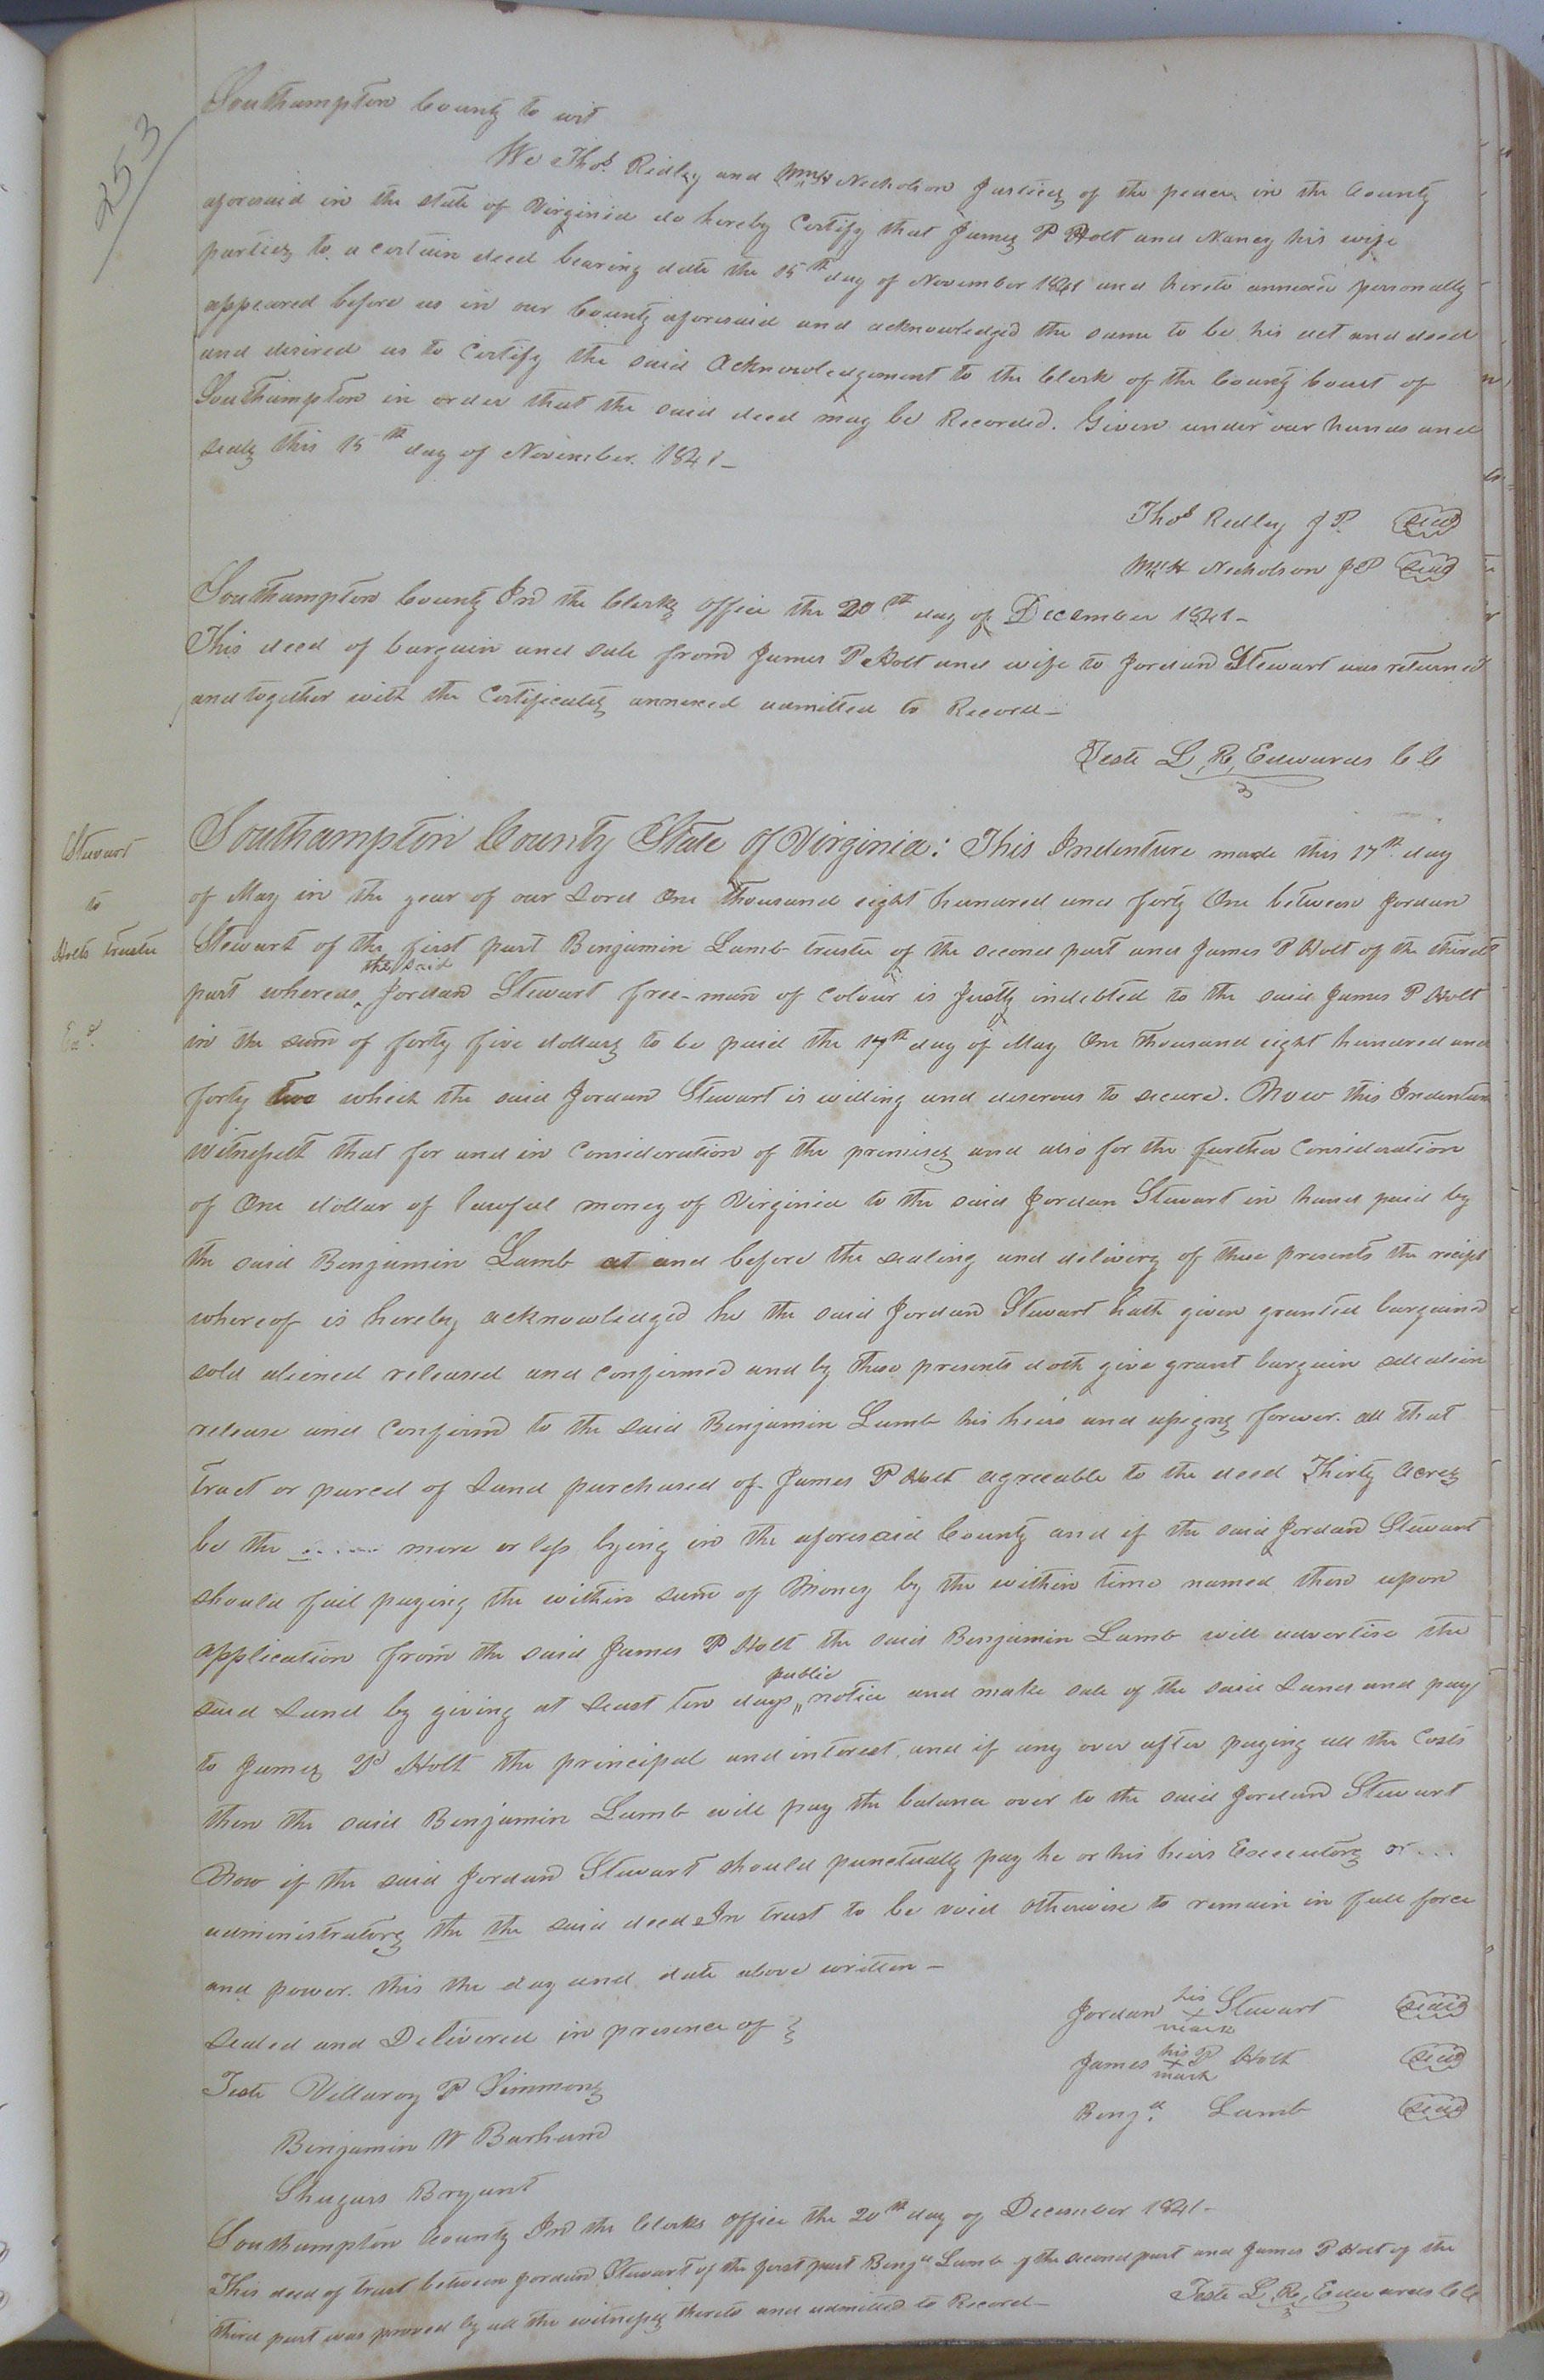 253
Southampton County to wit
We Thos. Ridley and Wm H Nicholson Justices of the peace in the County
aforesaid in the state of Virginia do hereby Certify that James P Holt and Nancy his wife
parties to a certain deed bearing date the 15th day of November 1841 and hereto annexed personally
appeared before us in our County aforesaid and acknowledged the same to be his act and deed
and desired us to Certify the said Acknowledgement to the Clerk of the County Court of
Southampton in order that the said deed may be Recorded. Given under our hands and
seals this 15th day of November. 1841 –
Thos Ridley J P. seal
Wm H Nicholson J P seal
Southampton County In the Clerks office the 20th day of December 1841 –
This deed of bargain and sale from James P Holt and wife to Jordan Stewart was returned
and together with the Certificates annexed admitted to Record –
Teste L, R, Edwards C C
Stewart
to
Holts trustee
Southampton County State of Virginia: This Indenture made this 17th day
of May in the year of our Lord One thousand eight hundred and forty One between Jordan
Stewart of the first part Benjamin Lamb trustee of the second part and James P Holt of the third
part whereas the said Jordan Stewart free-man of colour is Justly indebted to the said James P Holt
in the sum of forty five dollars to be paid the 17th day of May One thousand eight hundred and
forty two which the said Jordan Stewart is willing and deserous to secure. Now this Indenture
witnesseth that for and in Consideration of the premises and also for the further Consideration
of One dollar of lawful money of Virginia to the said Jordan Stewart in hand paid by
the said Benjamin Lamb at and before the sealing and delivery of these presents the reicpt
whereof is hereby acknowledged he the said Jordan Stewart hath given granted bargained
sold aliened released and confirmed and by these presents doth give grant bargain sell alien
release and Confirm to the said Benjamin Lamb his heirs and assigns forever. all that
tract or parcel of Land purchased of James P Holt agreeable to the deed Thirty Acres
be the more or less lying in the aforesaid County and if the said Jordan Stewart
should fail paying the within sum of Money by the within time named then upon
application from the said James P Holt the said Benjamin Lamb will advertise the
said Land by giving at Least ten days public notice and make sale of the said Land and pay
to James P Holt the principal and interest, and if any over after paying all the Costs
then the said Benjamin Lamb will pay the balance over to the said Jordan Stewart
Now if the said Jordan Stewart should punctually pay he or his heirs Executors or ...
administrators the the said deed In trust to be void otherwise to remain in full force
and power. this the day and date above written –
Sealed and Delivered in presence of }
Jordan his x mark Stewart seal
James his x mark P Holt seal
Benja. Lamb seal
Teste Villaroy P Simmons
Benjamin W Barham
Shugars Bryant
Southampton County In the Clerks office the 20th day of December 1841 –
This deed of trust between Jordan Stewart of the first part Benja Lamb of the second part and James P Holt of the
third part was proved by all the witnesses thereto and admitted to Record –
Teste L, R, Edwards C C